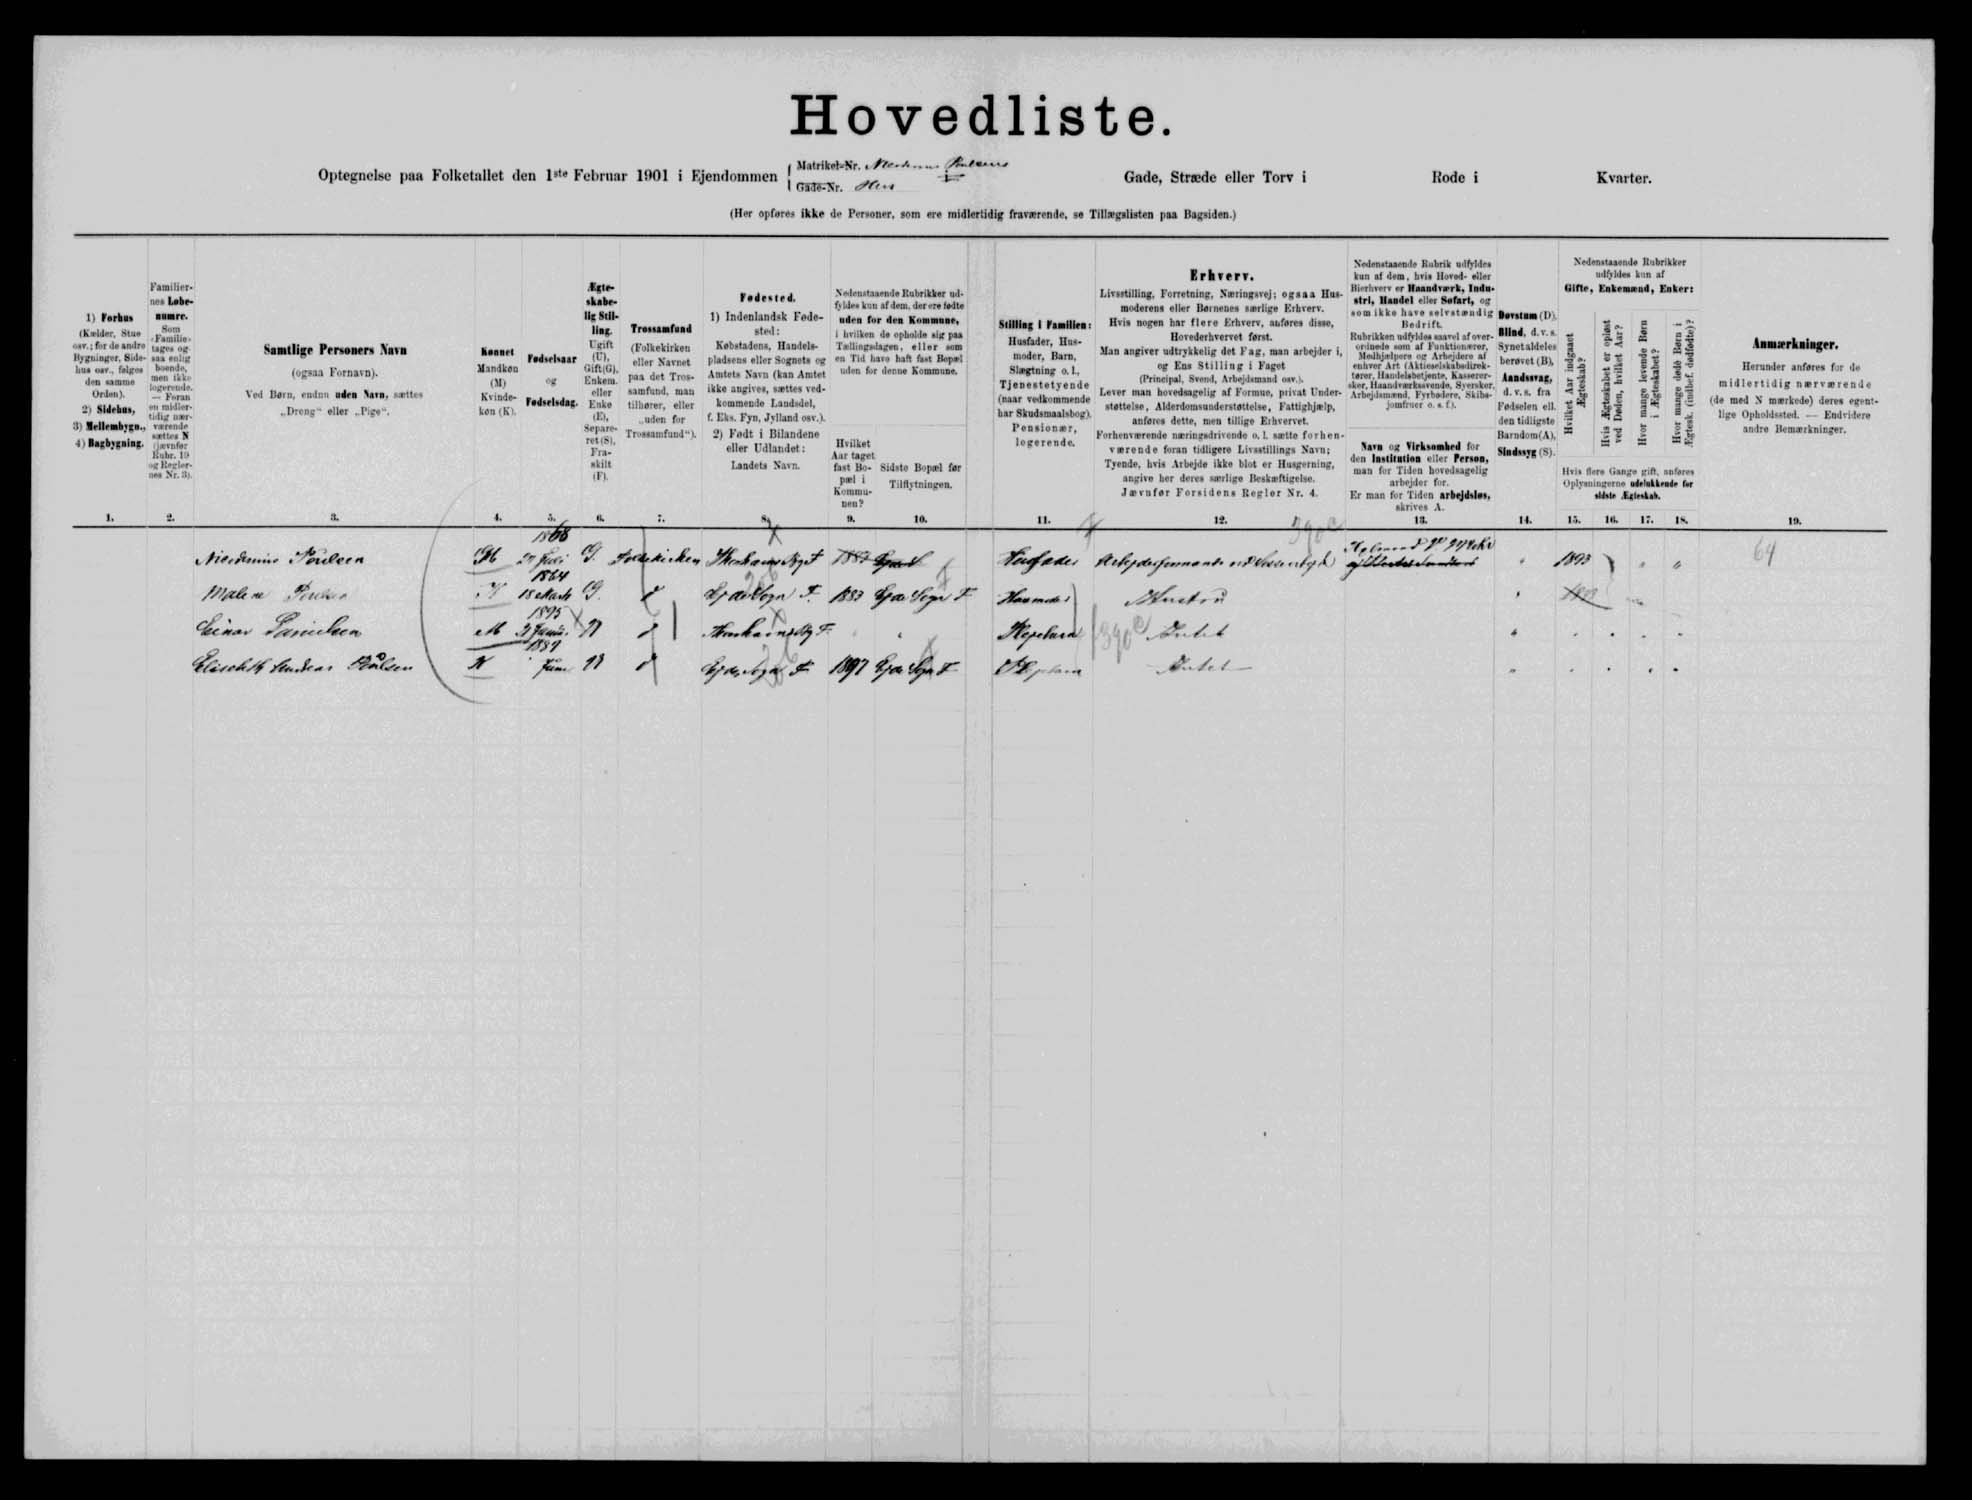 Hovedliste.
Optegnelse paa Folketallet den 1ste Februar 1901 i Ejendommen
Matrikel-Nr. Poulsens
Gade-Nr. Hus
Gade, Stræde eller Torv i Rode i Kvarter.
(Her opføres ikke de Personer, som ere midlertidig fraværende, se Tillægslisten paa Bagsiden.)
1) Forhus
(Kælder, Stue
osv.; for de andre
Bygninger, Side-
hus osv., følges
den samme
Orden).
2) Sidehus,
3) Mellembygn.,
4) Bagbygning.
1.
Familier-
nes Løbe-
numre.
Som
«Familie»
tages og-
saa enlig
boende,
men ikke
logerende.
— Foran
en midler-
tidig nær-
værende
sættes N
(jævnfør
Rubr. 19
og Regler-
nes Nr. 3).
2.
Samtlige Personers Navn
(ogsaa Fornavn).
Ved Børn, endnu uden Navn, sættes
„Dreng“ eller „Pige“.
3.
Kønnet
Mandkøn
(M)
Kvinde-
køn (K).
4.
Fødselsaar
og
Fødselsdag.
5.
Ægte-
skabe-
lig Stil-
ling.
Ugift
(U),
Gift(G),
Enkem.
eller
Enke
(E),
Separe-
ret (S),
Fra-
skilt
(F).
6.
Trossamfund
(Folkekirken
eller Navnet
paa det Tros-
samfund, man
tilhører, eller
„uden for
Trossamfund“).
7.
Fødested.
1) Indenlandsk Føde-
sted:
Købstadens, Handels-
pladsens eller Sognets og
Amtets Navn (kan Amtet
ikke angives, sættes ved-
kommende Landsdel,
f. Eks. Fyn, Jylland osv.).
2) Født i Bilandene
eller Udlandet:
Landets Navn.
8.
Nedenstaaende Rubrikker ud-
fyldes kun af dem, der ere fødte
uden for den Kommune,
i hvilken de opholde sig paa
Tællingsdagen, eller som
en Tid have haft fast Bopæl
uden for denne Kommune.
Hvilket
Aar taget
fast Bo-
pæl i
Kommu-
nen?
9.
Sidste Bopæl før
Tilflytningen.
10.
Stilling i Familien:
Husfader, Hus-
moder, Barn,
Slægtning o. l.,
Tjenestetyende
(naar vedkommende
har Skudsmaalsbog).
Pensionær,
logerende.
11.
Erhverv.
Livsstilling, Forretning, Næringsvej; ogsaa Hus-
moderens eller Børnenes særlige Erhverv.
Hvis nogen har flere Erhverv, anføres disse,
Hovederhvervet først.
Man angiver udtrykkelig det Fag, man arbejder i,
og Ens Stilling i Faget
(Principal, Svend, Arbejdsmand osv.).
Lever man hovedsagelig af Formue, privat Under-
støttelse, Alderdomsunderstøttelse, Fattighjælp,
anføres dette, men tillige Erhvervet.
Forhenværende næringsdrivende o. l. sætte forhen-
værende foran tidligere Livsstillings Navn;
Tyende, hvis Arbejde ikke blot er Husgerning,
angive her deres særlige Beskæftigelse.
Jævnfør Forsidens Regler Nr. 4.
12.
Nedenstaaende Rubrik udfyldes
kun af dem, hvis Hoved- eller
Bierhverv er Haandværk, Indu-
stri, Handel eller Søfart, og
som ikke have selvstændig
Bedrift.
Rubrikken udfyldes saavel af over-
ordnede som af Funktionærer,
Medhjælpere og Arbejdere af
enhver Art (Aktieselskabsdirek-
tører, Handelsbetjente, Kasserer-
sker, Haandværkssvende, Syersker,
Arbejdsmænd, Fyrbødere, Skibs-
jomfruer o. s. f.).
Navn og Virksomhed for
den Institution eller Person,
man for Tiden hovedsagelig
arbejder for.
Er man for Tiden arbejdsløs,
skrives A.
13.
Døvstum (D),
Blind, d. v. s.
Synet aldeles
berøvet (B),
Aandssvag,
d. v. s. fra
Fødselen ell.
den tidligste
Barndom(A),
Sindssyg (S).
14.
Nedenstaaende Rubrikker
udfyldes kun af
Gifte, Enkemænd, Enker:
Hvilket Aar indgaaet
Ægteskab?
Hvis Ægteskabet er opløst
ved Døden, hvilket Aar?
Hvor mange levende Børn
i Ægteskabet?
Hvor mange døde Børn i
Ægtesk. (indbef. dødfødte)?
Hvis flere Gange gift, anføres
Oplysningerne udelukkende for
sidste Ægteskab.
15. 16. 17. 18.
Anmærkninger.
Herunder anføres for de
midlertidig nærværende
(de med N mærkede) deres egent-
lige Opholdssted. — Endvidere
andre Bemærkninger.
19.
Poulsen M 1868 Juli G. Folkekirken Thorshavns By F 1887 Husfader 1893 64
Malene Poulsen K 1864 18 Marts G. d Ejde Sogn F. 1883 Ejde Sogn F Husmoder Hustru
Einar Danielsen M 1895 U d Thorshavns By F. Plejebarn Intet
Elisabeth Poulsen K 1889 Juni U d Ejde Sogn F 1897 Ejde Sogn F Plejebarn Intet